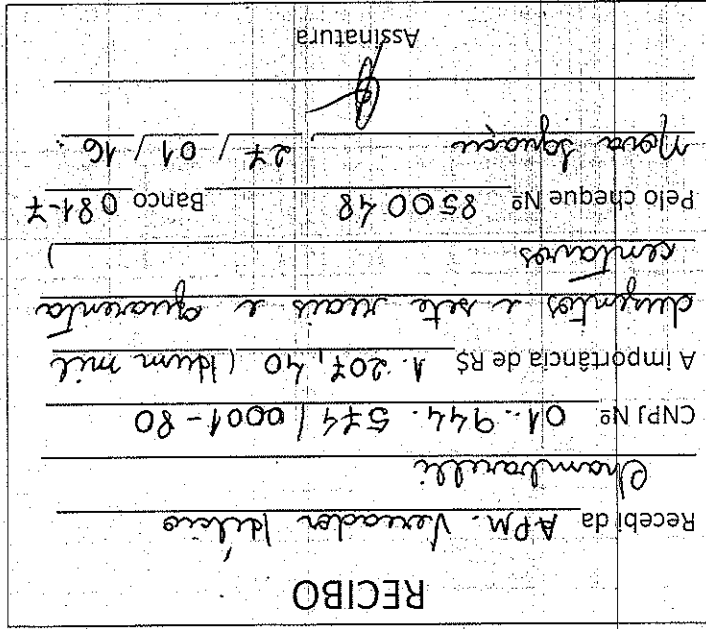 RECIBO
Recebi da APM. Vereador Hélcio
Chambarelli
CNPJ Nº 01.944.574/0001-80
A importância de R$ 1.207,40 (Hum mil
duzentos e sete reais e quarenta
centavos )
Pelo cheque Nº 850048 Banco 081-7
Nova Iguaçu, 27/01/16.
Assinatura